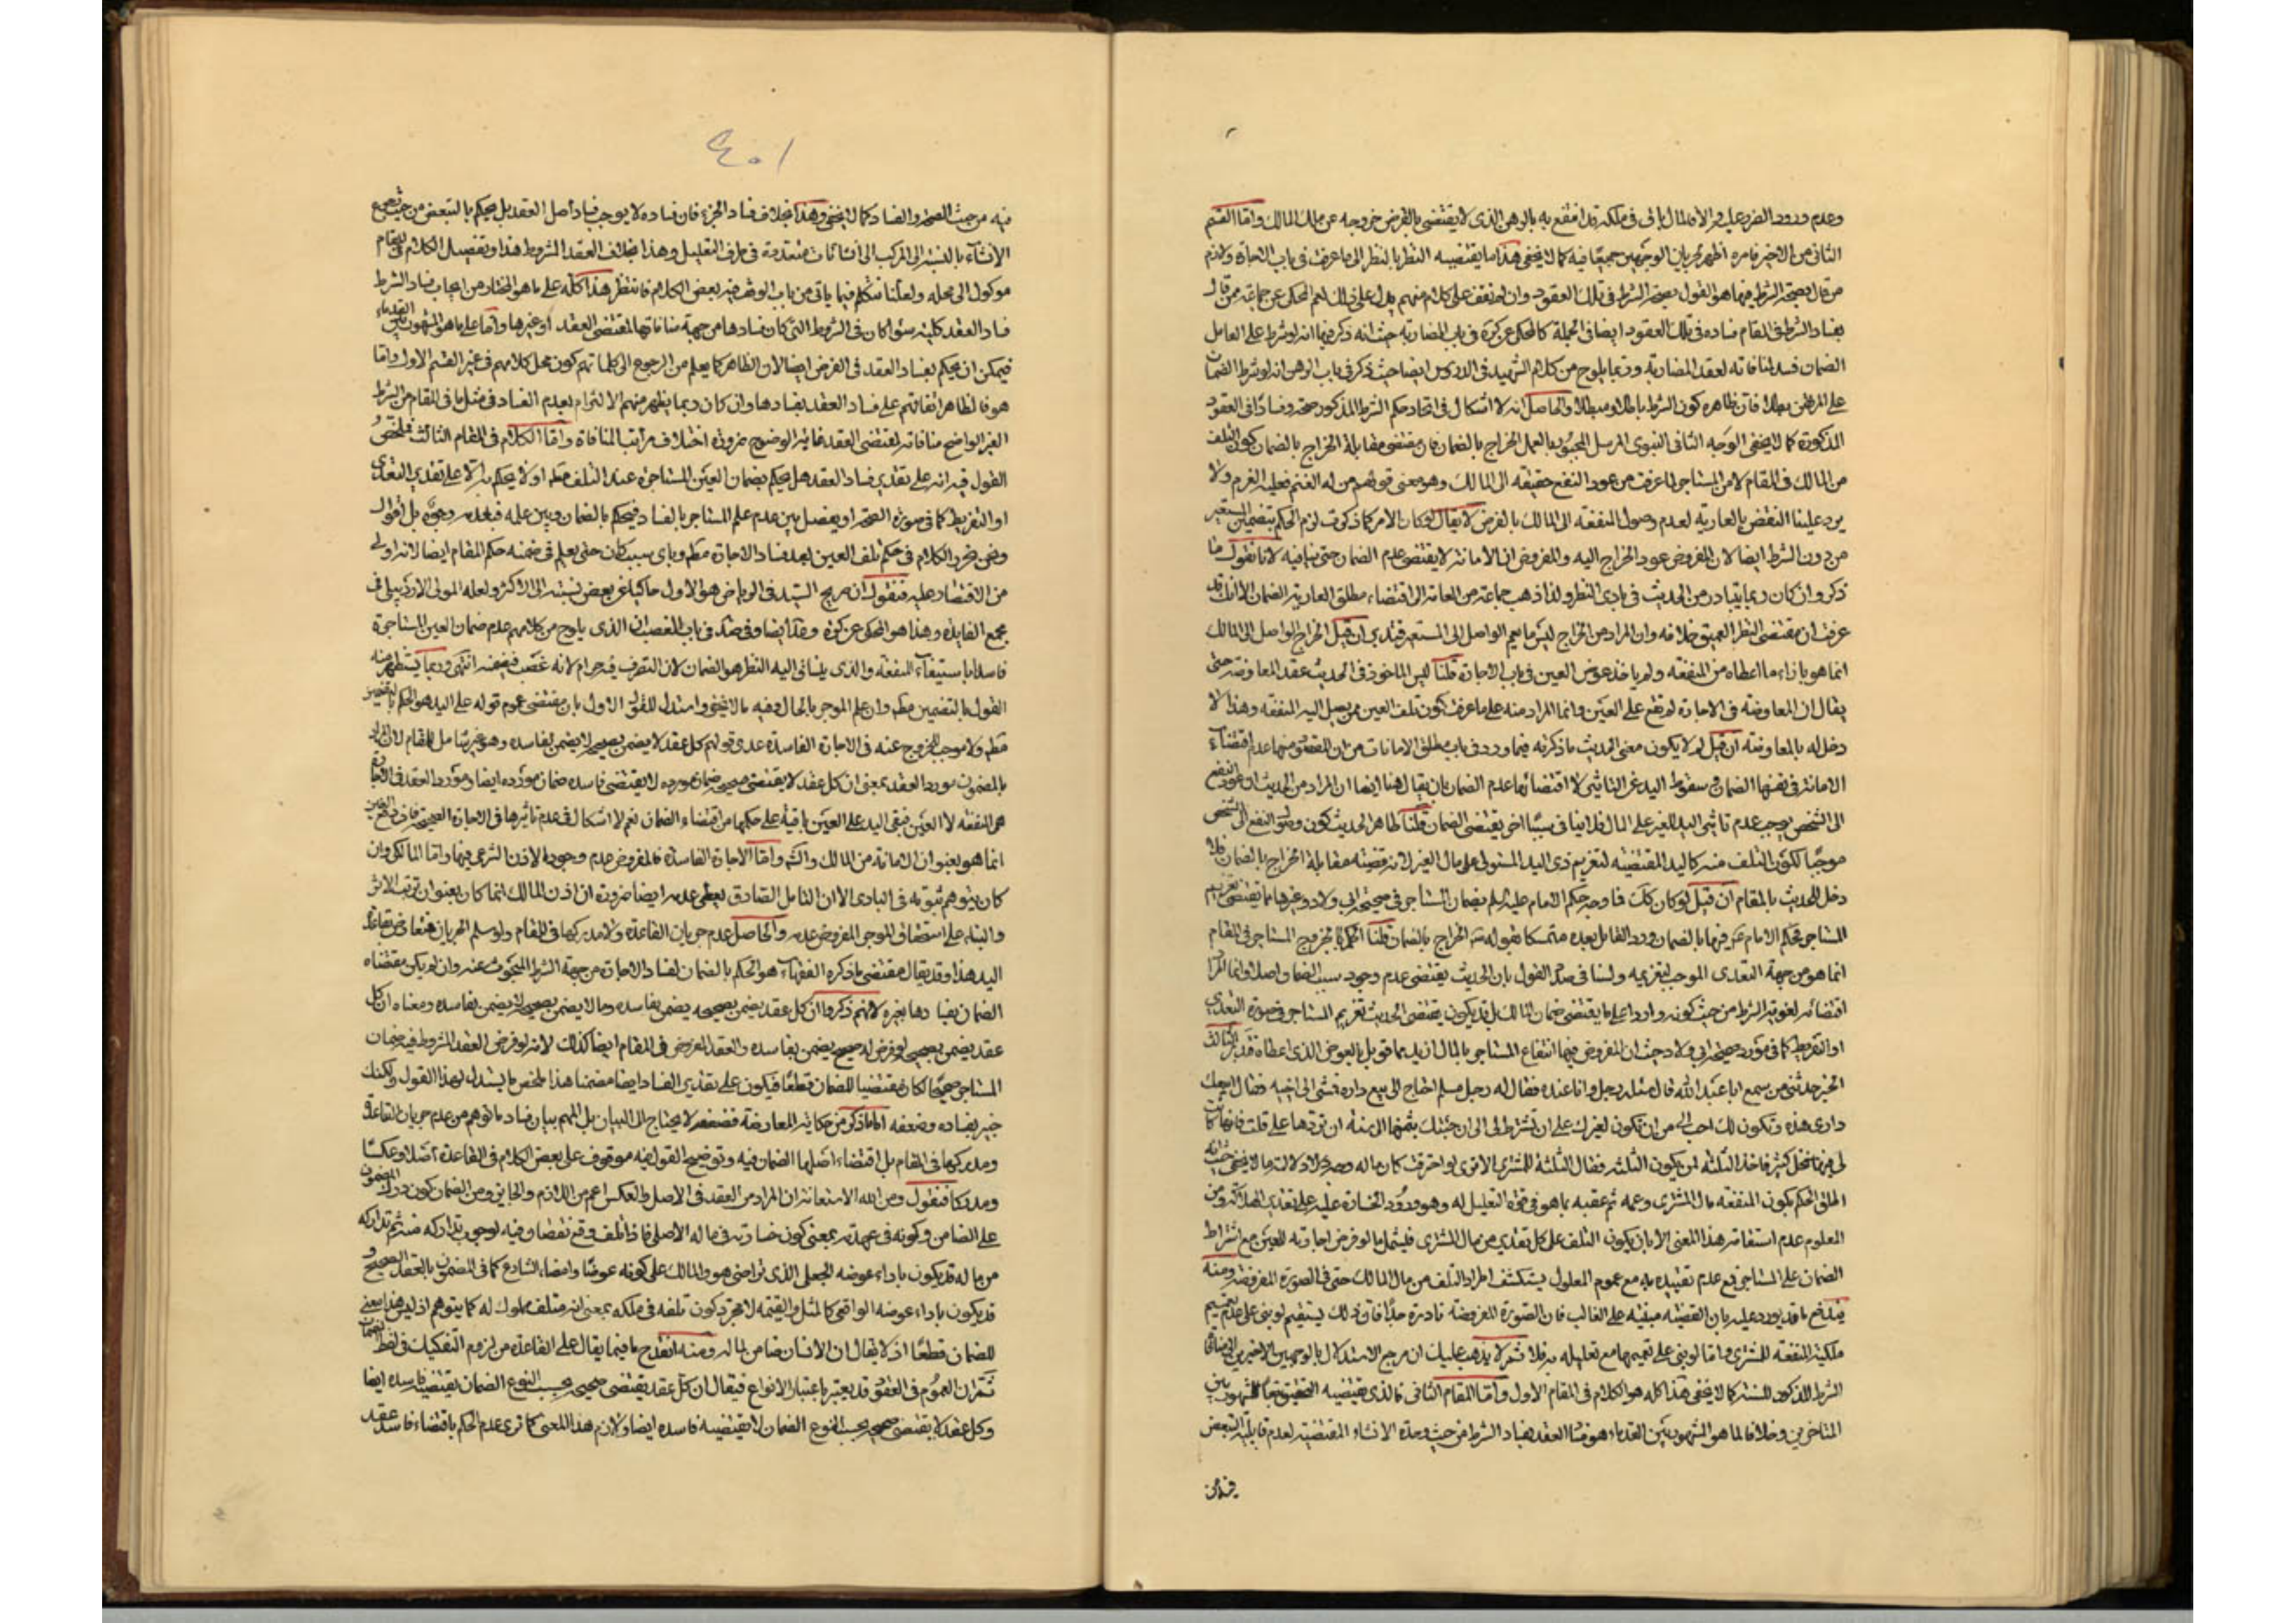 وعدم ورود الضرر عليه والا فالمال باق في ملكه قد انتفع به بالرهن الذي لا يقتضي بالفرض خروجه عن ملك المالك واما القسم
الثاني من الاخير فامره اظهر لجريان الوجهين جميعًا فيه كما لا يخفى هذا ما يقتضيه النظر بالنظر الى ما عرفت في باب الاجارة ولازم
من قال بصحة الشرط فيها هو القول بصحة الشرط في تلك العقود وان لم نقف على كلام منهم يدل على ذلك نعم المحكى عن جماعة ممن قال
بفساد الشرط في المقام فساده في تلك العقود ايضا في الجملة كالمحكى عن كرة في باب المضاربة حيث انه ذكر فيها انه لو شرط على العامل
الضمان فسد لمنافاته لعقد المضاربة وربما يلوح من كلام الشهيد في الدروس ايضا حيث ذكر في باب الرهن انه لو شرط الضمان
على المرتهن بطل فان ظاهره كون الشرط باطلا ومبطلا والحاصل انه لا اشكال في اتحاد حكم الشرط المذكور صحة وفسادا في العقود
المذكورة كما لا يخفى الوجه الثاني النبوي المرسل المجبور بالعمل الخراج بالضمان فان مقتضى مقابلة الخراج بالضمان كون التلف
من المالك في المقام لا من المستاجر لما عرفت من عود النفع حقيقة الى المالك وهو معنى قولهم من له الغنم فعليه الغرم ولا
يرد علينا النقض بالعارية لعدم وصول المنفعة الى المالك بالفرض لا يقال لو كان الامر كما ذكرت لزم الحكم بتضمين المستعير
من دون الشرط ايضا لان المفروض عود الخراج اليه والمفروض ان الامانة لا يقتضى عدم الضمان حتى ينافيه لانا نقول ما
ذكر وان كان ربما يتبادر من الحديث في بادي النظر ولذا ذهب جماعة من العامة الى اقتضاء مطلق العارية الضمان الا انك قد
عرفت ان مقتضى النظر العميق خلافه وان المراد من الخراج ليس ما يعم الواصل الى المستعير فتدبر ان قيل الخراج الواصل الى المالك
انما هو بازاء ما اعطاه من المنفعة ولم ياخذ عوض العين في باب الاجارة قلنا ليس الماخوذ في الحديث عقد المعاوضة حتى
يقال ان المعاوضة في الاجارة لم تقع على العين وانما المراد منه على ما عرفت كون تلف العين ممن يصل اليه المنفعة وهذا لا
دخل له بالمعاوضة ان قيل لم لا يكون معنى الحديث ما ذكرته فيما ورد في باب مطلق الامانات من ان المقصود منها عدم اقتضاء
الامانة في نفسها الضمان وسقوط اليد عن التاثير لا اقتضائها عدم الضمان بان يقال هنا ايضا ان المراد من الحديث ان عود النفع
الى الشخص يوجب عدم تاثير اليد للغير على المال فلا ينافي سببًا اخر يقتضى الضمان قلنا ظاهر الحديث كون وصول النفع الى شخص
موجبًا لكون التلف منه كاليد المقتضية لتغريم ذي اليد المستولى على مال الغير لانه قضية مقابلة الخراج بالضمان فلا
دخل للحديث بالمقام ان قيل لو كان كك فما وجه حكم الامام عليه السلم بضمان المستاجر في صحيحة ابي ولاد وغيرها مما يقتضى تغريم
انما هو من جهة التعدى الموجب لتغريمه ولسنا في صدد القول بان الحديث يقتضى عدم وجود سبب للضمان اصلا وانما المراد
اقتضائه لغوية الشرط من حيث كونه واردا على ما يقتضى ضمان المالك بل قد يكون يقتضى الحديث تغريم المستاجر في صورة التعدى
او التفريط كما في مورد صحيحة ابي ولاد حيث ان المفروض فيها انتفاع المستاجر بالمال ازيد مما قوبل بالعوض الذي اعطاه فتدبر الثالث
الخبر حدثني من سمع ابا عبد الله قال سئله رجل وانا عنده فقال له رجل مسلم احتاج الى بيع داره فمشى الى اخيه فقال ابيعك
دارى هذه وتكون لك احب الى من ان تكون لغيرك على ان تشترط لى ان جئتك بثمنها الى سنة ان تردها على قلت فانها كانت
المعلوم عدم استقامة هذا المعنى الا بان يكون التلف على كل تقدير من مال المشترى فيشمل ما لو فرض اجارته للعين مع اشتراط
الضمان على المستاجر فمع عدم تقييده به مع عموم المعلول يستكشف اطراد التلف من مال المالك حتى في الصورة المفروضة ومنه
يندفع ما قد يورد عليه بان القضية مبنية على الغالب فان الصورة المفروضة نادرة جدًا فان ذلك يستقيم لو بنى على عدم تعميم
ملكية المنفعة للمشترى واما لو بنى على تعميمها مع تعليله به فلا ثم لا يذهب عليك ان مرجع الاستدلال بالوجهين الاخيرين الى منافاة
الشرط المذكور للسنة كما لا يخفى هذا كله هو الكلام في المقام الاول واما المقام الثاني فالذى يقتضيه التحقيق تبعًا للمشهور بين
المتاخرين وخلافا لما هو المشهور بين القدماء هو فساد العقد بفساد الشرط من حيث وحدة الانشاء المقتضية لعدم قابلية التبعض
فيه من
فيه من حيث الصحة والفساد كما لا يخفى وهذا بخلاف فساد الجزء فان فساده لا يوجب فساد اصل العقد بل يحكم بالتبعض من حيث تجمع
الانشاء بالنسبة الى المركب الى انشائات متعددة في طرف التعليل وهذا بخلاف العقد المشروط هذا وتفصيل الكلام في المقام
موكول الى محله ولعلنا نتكلم فيما ياتى من باب الوقف فيه بعض الكلام فانتظر هذا كله على ما هو المختار من ايجاب فساد الشرط
فساد العقد كلية سواء كان في الشروط التي كان فسادها من جهة منافاتها لمقتضى العقد او غيرها واما على ما هو المشهور بين القدماء
فيمكن ان يحكم بفساد العقد في الفرض ايضا لان الظاهر كما يعلم من الرجوع الى كلماتهم كون محل كلامهم في غير القسم الاول واما
هو فالظاهر اتفاقهم على فساد العقد بفسادها وان كان ربما يظهر منهم الالتزام بعدم الفساد في مثل ما في المقام من الشرط
الغير الواضح منافاته لمقتضى العقد غاية الوضوح ضرورة اختلاف مراتب المنافاة واما الكلام في المقام الثالث فملخص
القول فيه انه على تقدير فساد العقد هل يحكم بضمان العين المستاجرة عند التلف مطم او لا يحكم به الا على تقدير التعدى
او التفريط كما في صورة الصحة او يفصل بين عدم علم المستاجر بالفساد فيحكم بالضمان وبين علمه فبعدمه وجوه بل اقوال
ونحن نجرد الكلام في حكم تلف العين بعد فساد الاجارة مطم وباى سبب كان حتى يعلم في ضمنه حكم المقام ايضا لانه اولى
من الاقتصار عليه فنقول ان صريح السيد في الرياض هو الاول حاكيا عن بعض نسبته الى الاكثر ولعله المولى الاردبيلى في
مجمع الفايدة وهذا هو المحكى عن كرة وعد ايضا وفي ضد في باب الغصب ان الذى يلوح من كلامهم عدم ضمان العين المستاجرة
فاسدا باستيفاء المنفعة والذى ينساق اليه النظر هو الضمان لان التصرف فيه حرام لانه غصب فيضمنه انتهى وربما يستظهر منه
القول بالتضمين مطم وان علم الموجر بالحال وفيه ما لا يخفى وامتدل للقول الاول بان مقتضى عموم قوله على اليد هو الحكم بالتضمين
مطم ولا موجب للخروج عنه في الاجارة الفاسدة عدى قولهم كل عقد لا يضمن بصحيحه لا يضمن بفاسده وهو غير شامل للمقام لان المراد
بالمضمون مورد العقد بمعنى ان كل عقد لا يقتضى صحيحه ضمان مورده لا يقتضى فاسده ضمان مورده ايضا ومورد العقد في الاجارة
هي المنفعة لا العين فبقى اليد على العين باقية على حكمها من اقتضاء الضمان نعم لا اشكال في عدم تاثيرها في الاجارة الصحيحة فان دفع العين
انما هو بعنوان الامانة من المالك والشرع واما الاجارة الفاسدة فالمفروض عدم وجود الاذن الشرعى فيها واما المالكى وان
كان يتوهم ثبوته في البادى الا ان التامل الصادق يعطى عدمه ايضا ضرورة ان اذن المالك انما كان بعنوان ترتب الاثر
والبناء على استحقاق الموجر المفروض عدمه والحاصل عدم جريان القاعدة ولا مدركها في المقام ولو سلم الجريان فتعارض بقاعدة
اليد هذا وقد يقال مقتضى ما ذكره الفقهاء هو الحكم بالضمان لفساد الاجارة من جهة الشرط المبحوث عنه وان لم يكن مقتضاه
الضمان بفسادها بغيره لانهم ذكروا ان كل عقد يضمن بصحيحه يضمن بفاسده وما لا يضمن بصحيحه لا يضمن بفاسده ومعناه ان كل
عقد يضمن بصحيحه لو فرض له صحيح يضمن بفاسده والعقد المفروض في المقام ايضا كذلك لانه لو فرض العقد المشروط فيه ضمان
المستاجر صحيحًا لكان مقتضيا للضمان قطعًا فيكون على تقدير الفساد ايضا مضمنا هذا ملخص ما يستدل لهذا القول ولكنك
خبير بفساده وضعفه اما ما ذكر من حكاية المعارضة فضعفه لا يحتاج الى البيان بل المهم بيان فساد ما توهم من عدم جريان القاعدة
ومدركها في المقام بل اقتضاء اصلها الضمان فيه وتوضيح القول فيه موقوف على بعض الكلام في القاعدة اصلا وعكسًا
ومدركا فنقول ومن الله الاستعانة ان المراد من العقد في الاصل والعكس اعم من اللازم والجايز ومن الضمان كون درك المضمون
على الضامن وكونه في عهدته بمعنى كون خسارته في ماله الاصلى فاذا تلف وقع نقصان فيه لوجوب تداركه منه ثم تداركه
من ماله قد يكون باداء عوضه الجعلى الذى تراضى هو والمالك على كونه عوضًا وامضاه الشارع كما في المضمون بالعقد الصحيح و
قد يكون باداء عوضه الواقعى كالمثل والقيمة لا مجرد كون تلفه في ملكه بمعنى انه يتلف مملوكا له كما يتوهم اذ ليس هذا معنى
للضمان قطعًا اذ لا يقال ان الانسان ضامن لماله ومنه انقدح ما فيما يقال على القاعدة من لزوم التفكيك في لفظ الضمان
ثم ان العموم في العقود قد يعتبر باعتبار الانواع فيقال ان كل عقد يقتضى صحيحه بحسب النوع الضمان يقتضيه فاسده ايضا
وكل عقد لا يقتضى صحيحه بحسب النوع الضمان لا يقتضيه فاسده ايضا ولازم هذا المعنى كما ترى عدم الحكم باقتضاء فاسد عقد